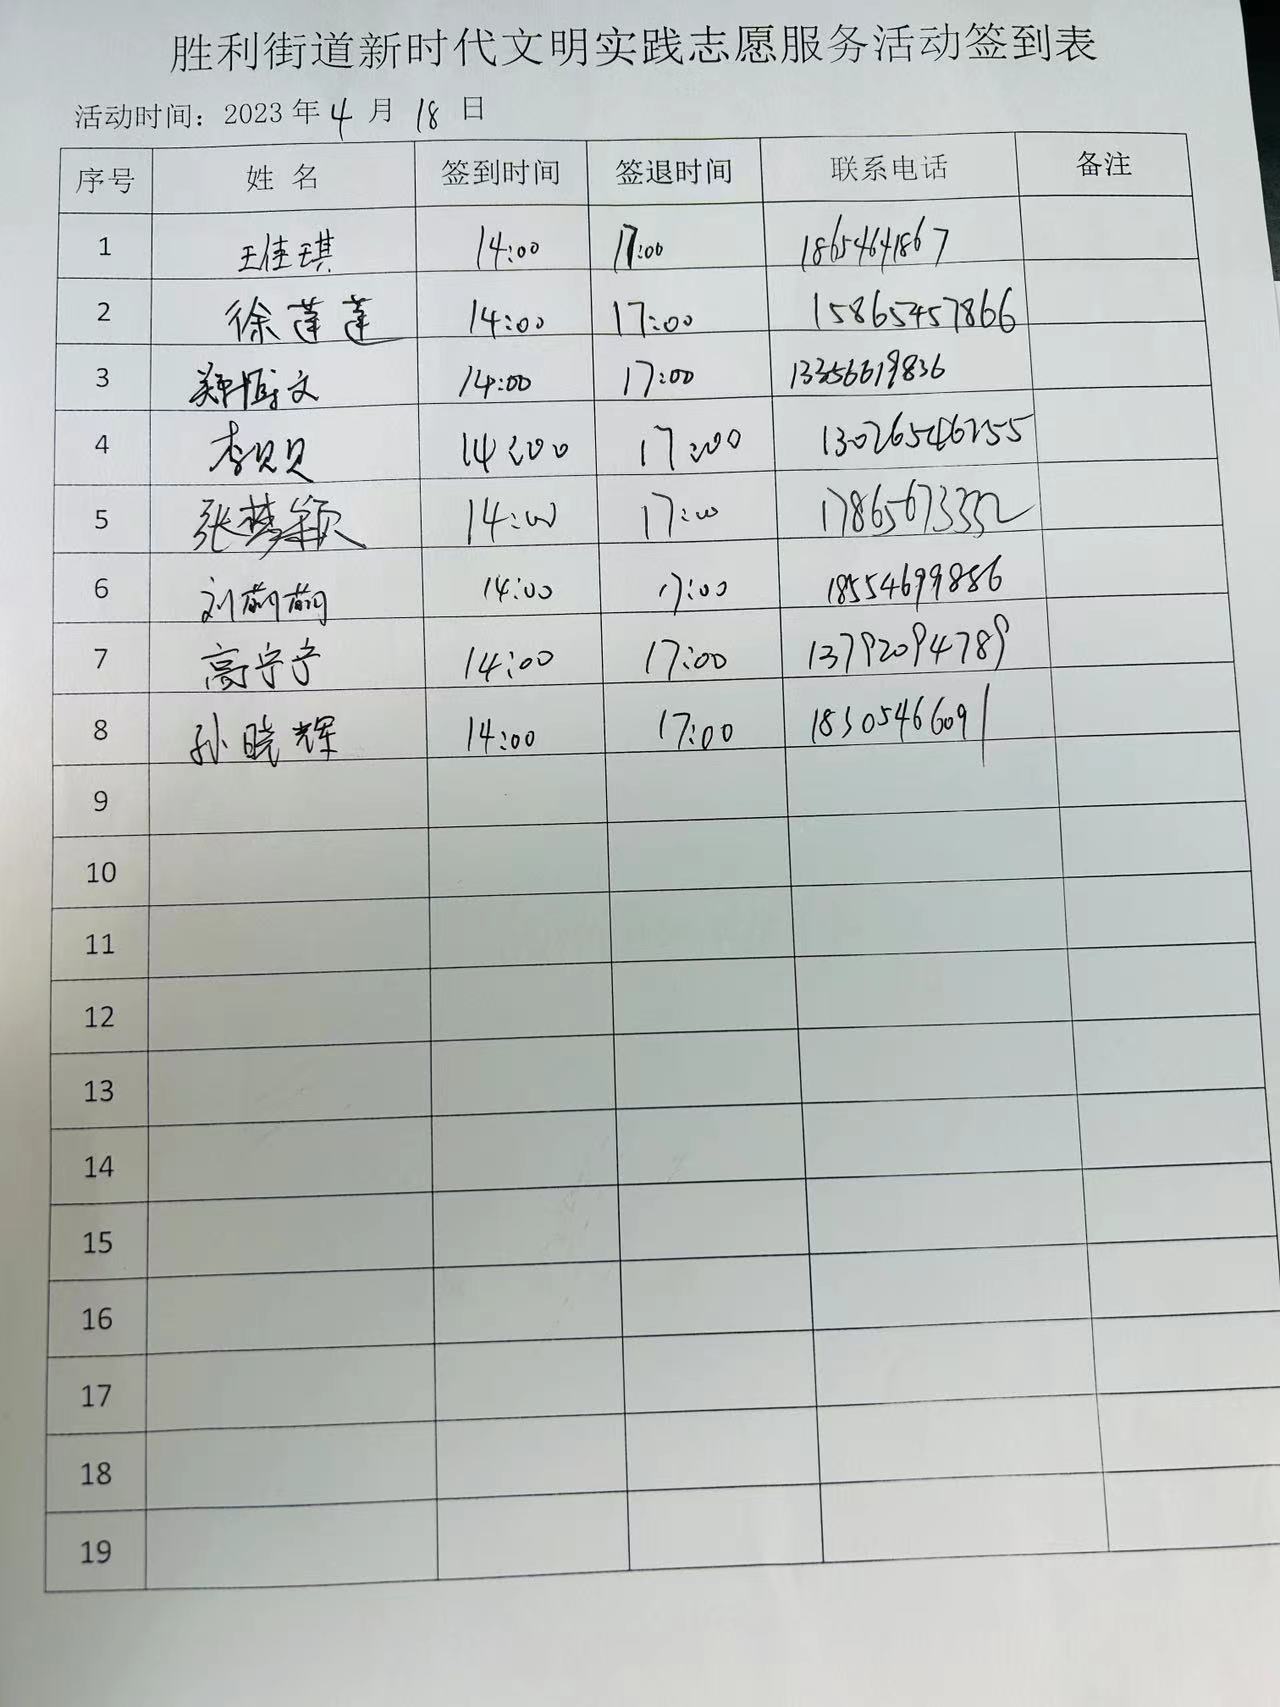 胜利街道新时代文明实践志愿服务活动签到表
活动时间：2023年4月18日
序号 姓 名 签到时间 签退时间 联系电话 备注
1 王佳琪 14:00 17:00 18654641867
2 徐莲莲 14:00 17:00 15865457866
3 郑博文 14:00 17:00 13356619836
4 李贝贝 14:00 17:00 13026546255
5 张梦颖 14:00 17:00 17865673332
6 刘萌萌 14:00 17:00 18554699886
7 高宁宁 14:00 17:00 13792094789
8 孙晓辉 14:00 17:00 18305466091
9
10
11
12
13
14
15
16
17
18
19